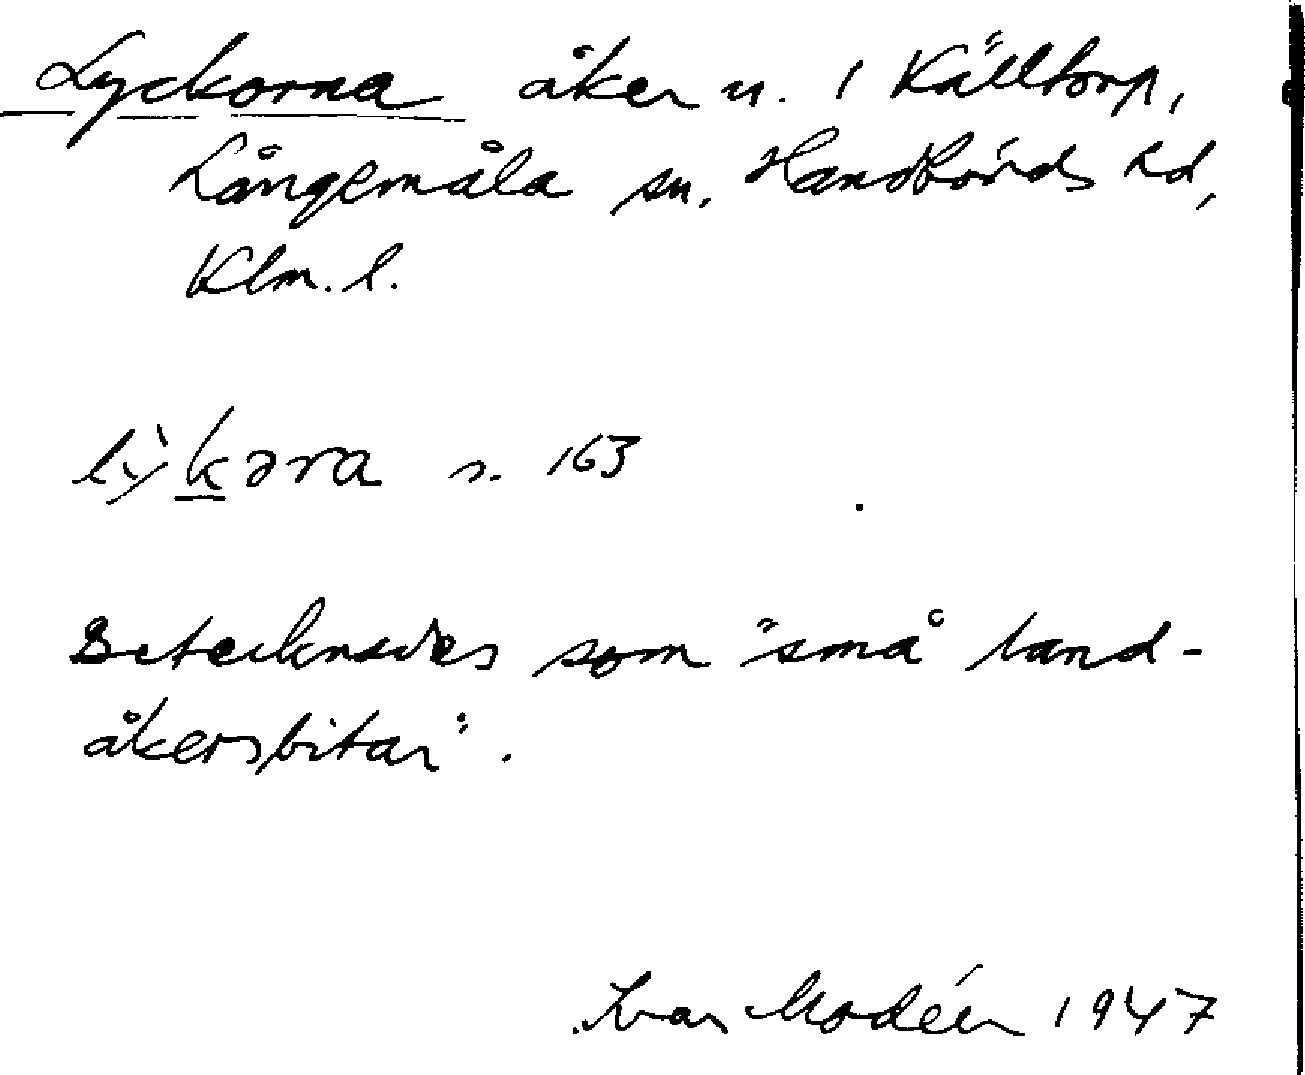 Lyckorna åker u. 1 Källtorp,
Långemåla sn. Handbörds hd,
Klm. l.
lỳkəra s. 163
Betecknades som "små land-
åkersbitar".
Ivar Modéer 1947